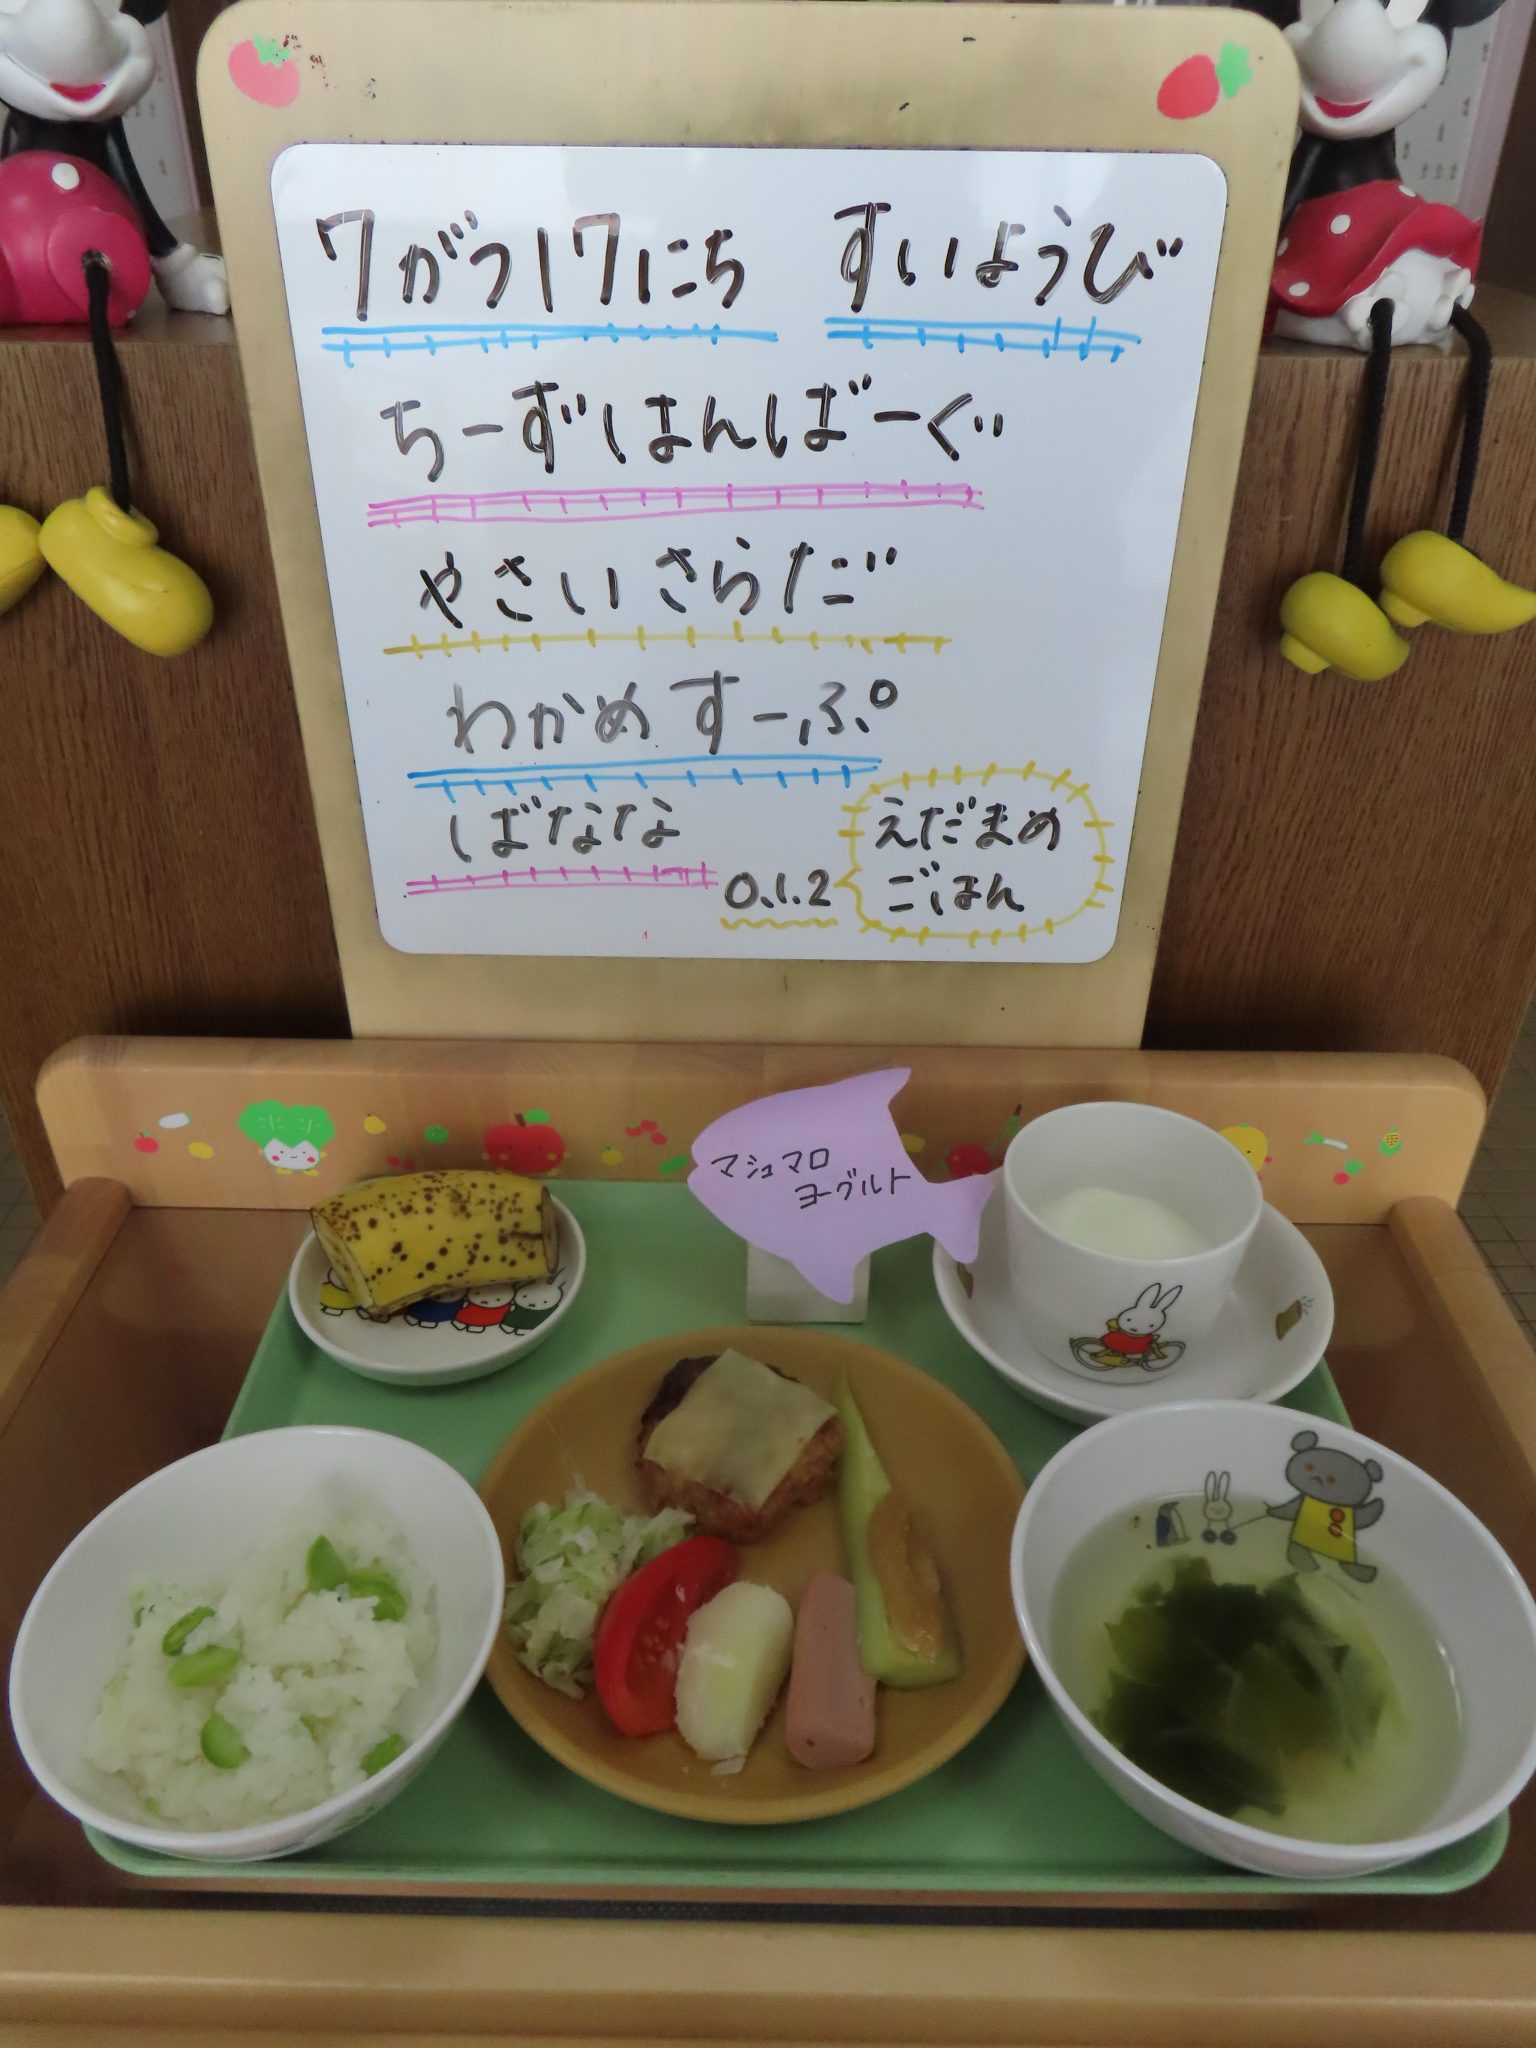 7がつ17にち すいようび
ちーずはんばーぐ
やさいさらだ
わかめすーぷ
ばなな
0.1.2
えだまめ
ごはん
マシュマロ
ヨーグルト